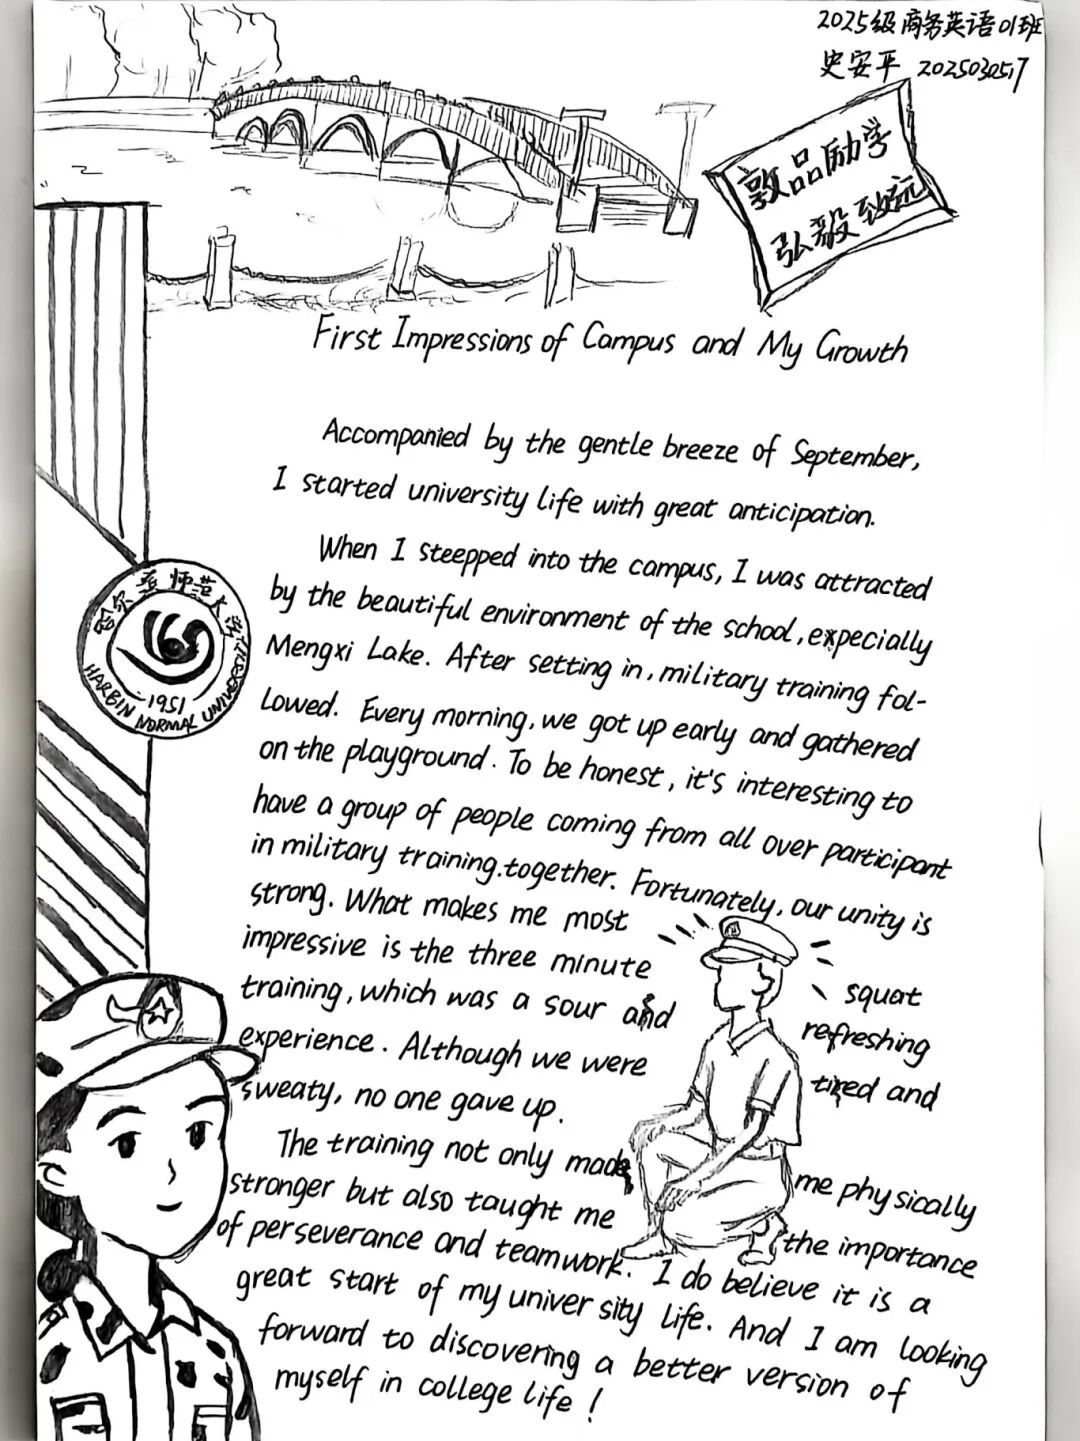 2025级商务英语01班
史安平 2025030517
敦品励学
弘毅致远
First Impressions of Campus and My Growth
Accompanied by the gentle breeze of September,
I started university life with great anticipation.
When I steepped into the campus, I was attracted
by the beautiful environment of the school, expecially
Mengxi Lake. After setting in, military training fol-
lowed. Every morning, we got up early and gathered
on the playground. To be honest, it's interesting to
have a group of people coming from all over participant
in military training.together. Fortunately, our unity is
strong. What makes me most
impressive is the three minute squat
training, which was a sour and refreshing
experience. Although we were tired and
sweaty, no one gave up.
The training not only made me physically
stronger but also taught me the importance
of perseverance and teamwork. I do believe it is a
great start of my university life. And I am looking
forward to discovering a better version of
myself in college life!
哈尔滨师范大学
1951
HARBIN NORMAL UNIVERSITY